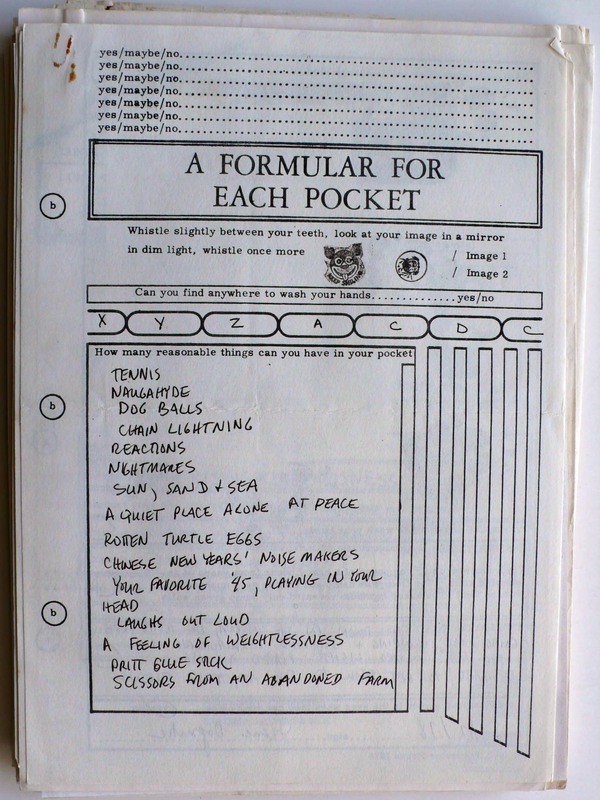 yes/maybe/no
yes/maybe/no
yes/maybe/no
yes/maybe/no
yes/maybe/no
yes/maybe/no
yes/maybe/no
A FORMULAR FOR
EACH POCKET
b
Whistle slightly between your teeth, look at your image in a mirror
in dim light, whistle once more
/ Image 1
/ Image 2
Can you find anywhere to wash your hands..............yes/no
X Y Z A C D C
How many reasonable things can you have in your pocket
TENNIS
NAUGAHYDE
DOG BALLS
b
CHAIN LIGHTNING
REACTIONS
NIGHTMARES
SUN, SAND & SEA
A QUIET PLACE ALONE AT PEACE
ROTTEN TURTLE EGGS
CHINESE NEW YEARS' NOISE MAKERS
YOUR FAVORITE '45, PLAYING IN YOUR
HEAD
b
LAUGHS OUT LOUD
A FEELING OF WEIGHTLESSNESS
PRITT GLUE STICK
SCISSORS FROM AN ABANDONED FARM